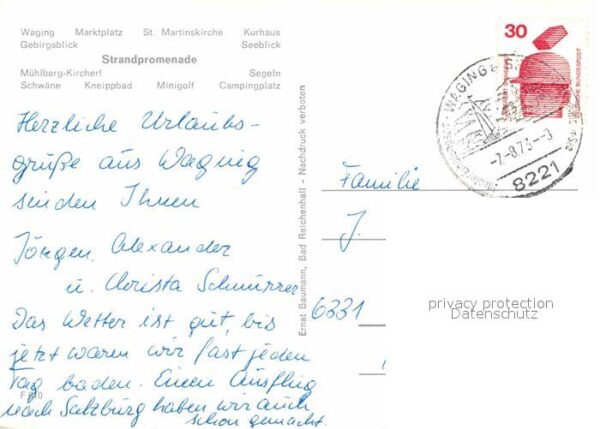 Waging Marktplatz St. Martinskirche Kurhaus
Gebirgsblick Seeblick
Strandpromenade
Mühlberg-Kircherl Segeln
Schwäne Kneippbad Minigolf Campingplatz
Herzliche Urlaubs-
grüße aus Waging
senden Ihnen
Jörgen, Alexander
u. Christa Schnürrer
Das Wetter ist gut, bis
jetzt waren wir fast jeden
Tag baden. Einen Ausflug
nach Salzburg haben wir auch
schon gemacht.
Ernst Baumann, Bad Reichenhall - Nachdruck verboten
30
DEUTSCHE BUNDESPOST
WAGING
-7.-8.73--8
8221
Familie
J.
6331
privacy protection
Datenschutz